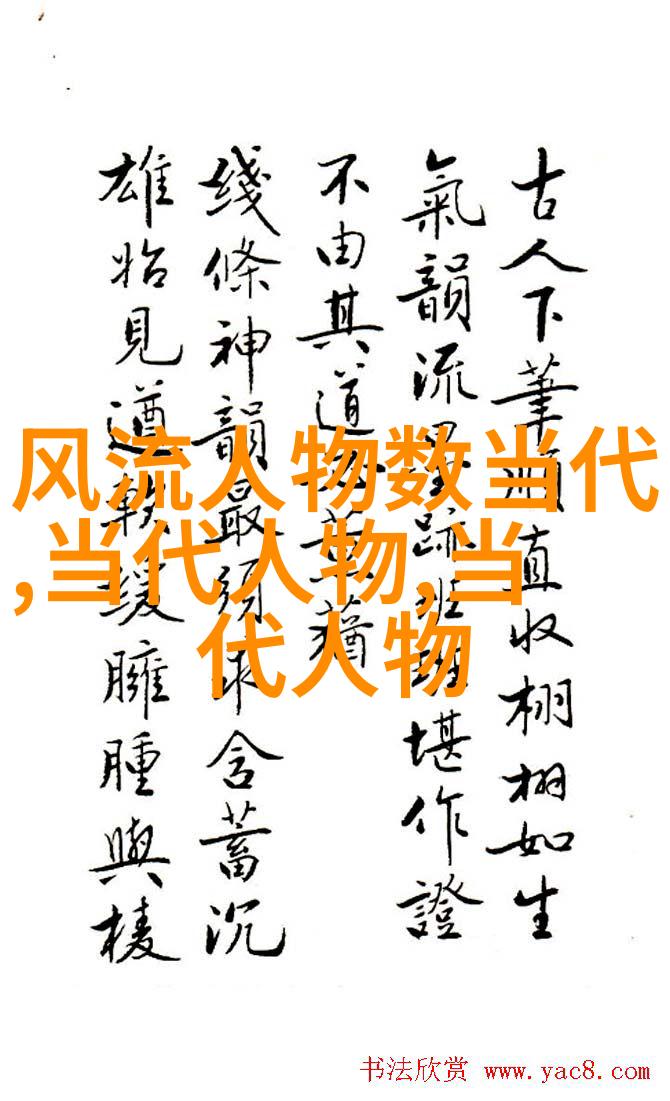 古人下筆順直收栩栩如生
氣韻流班班堪作證
不由其道
綫條神韻最須求含蓄沉
雄始見遒臃腫與棱
风流人物数当代
,当代人物,当
代人物
书法欣赏 www.yac8.com